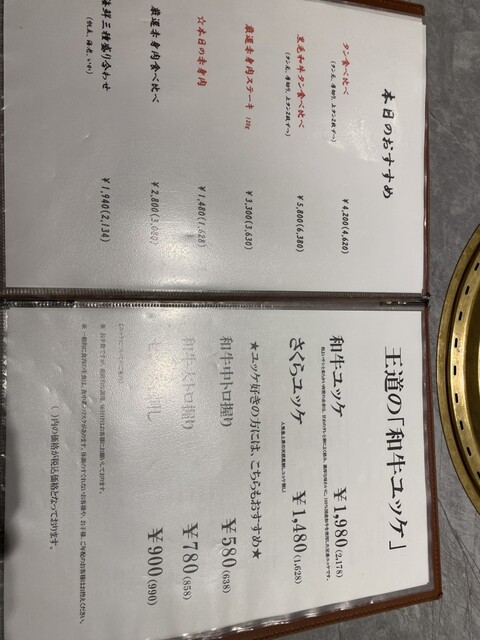 本日のおすすめ
タン食べ比べ ￥4,200(4,620)
(タン元、厚切り、上タン2枚ずつ)
黒毛和牛タン食べ比べ ￥5,800(6,380)
(タン元、厚切り、上タン2枚ずつ)
厳選赤身肉ステーキ 120g ￥3,300(3,630)
☆本日の赤身肉 ￥1,480(1,628)
厳選赤身肉食べ比べ ￥2,800(3,080)
海鮮三種盛り合わせ ￥1,940(2,134)
王道の「和牛ユッケ」
和牛ユッケ ￥1,980(2,178)
さくらユッケ ￥1,480(1,628)
★ユッケ好きの方には、こちらもおすすめ★
和牛中トロ握り ￥580(638)
和牛大トロ握り ￥780(858)
￥900(990)
( )内の価格が税込価格となっております。